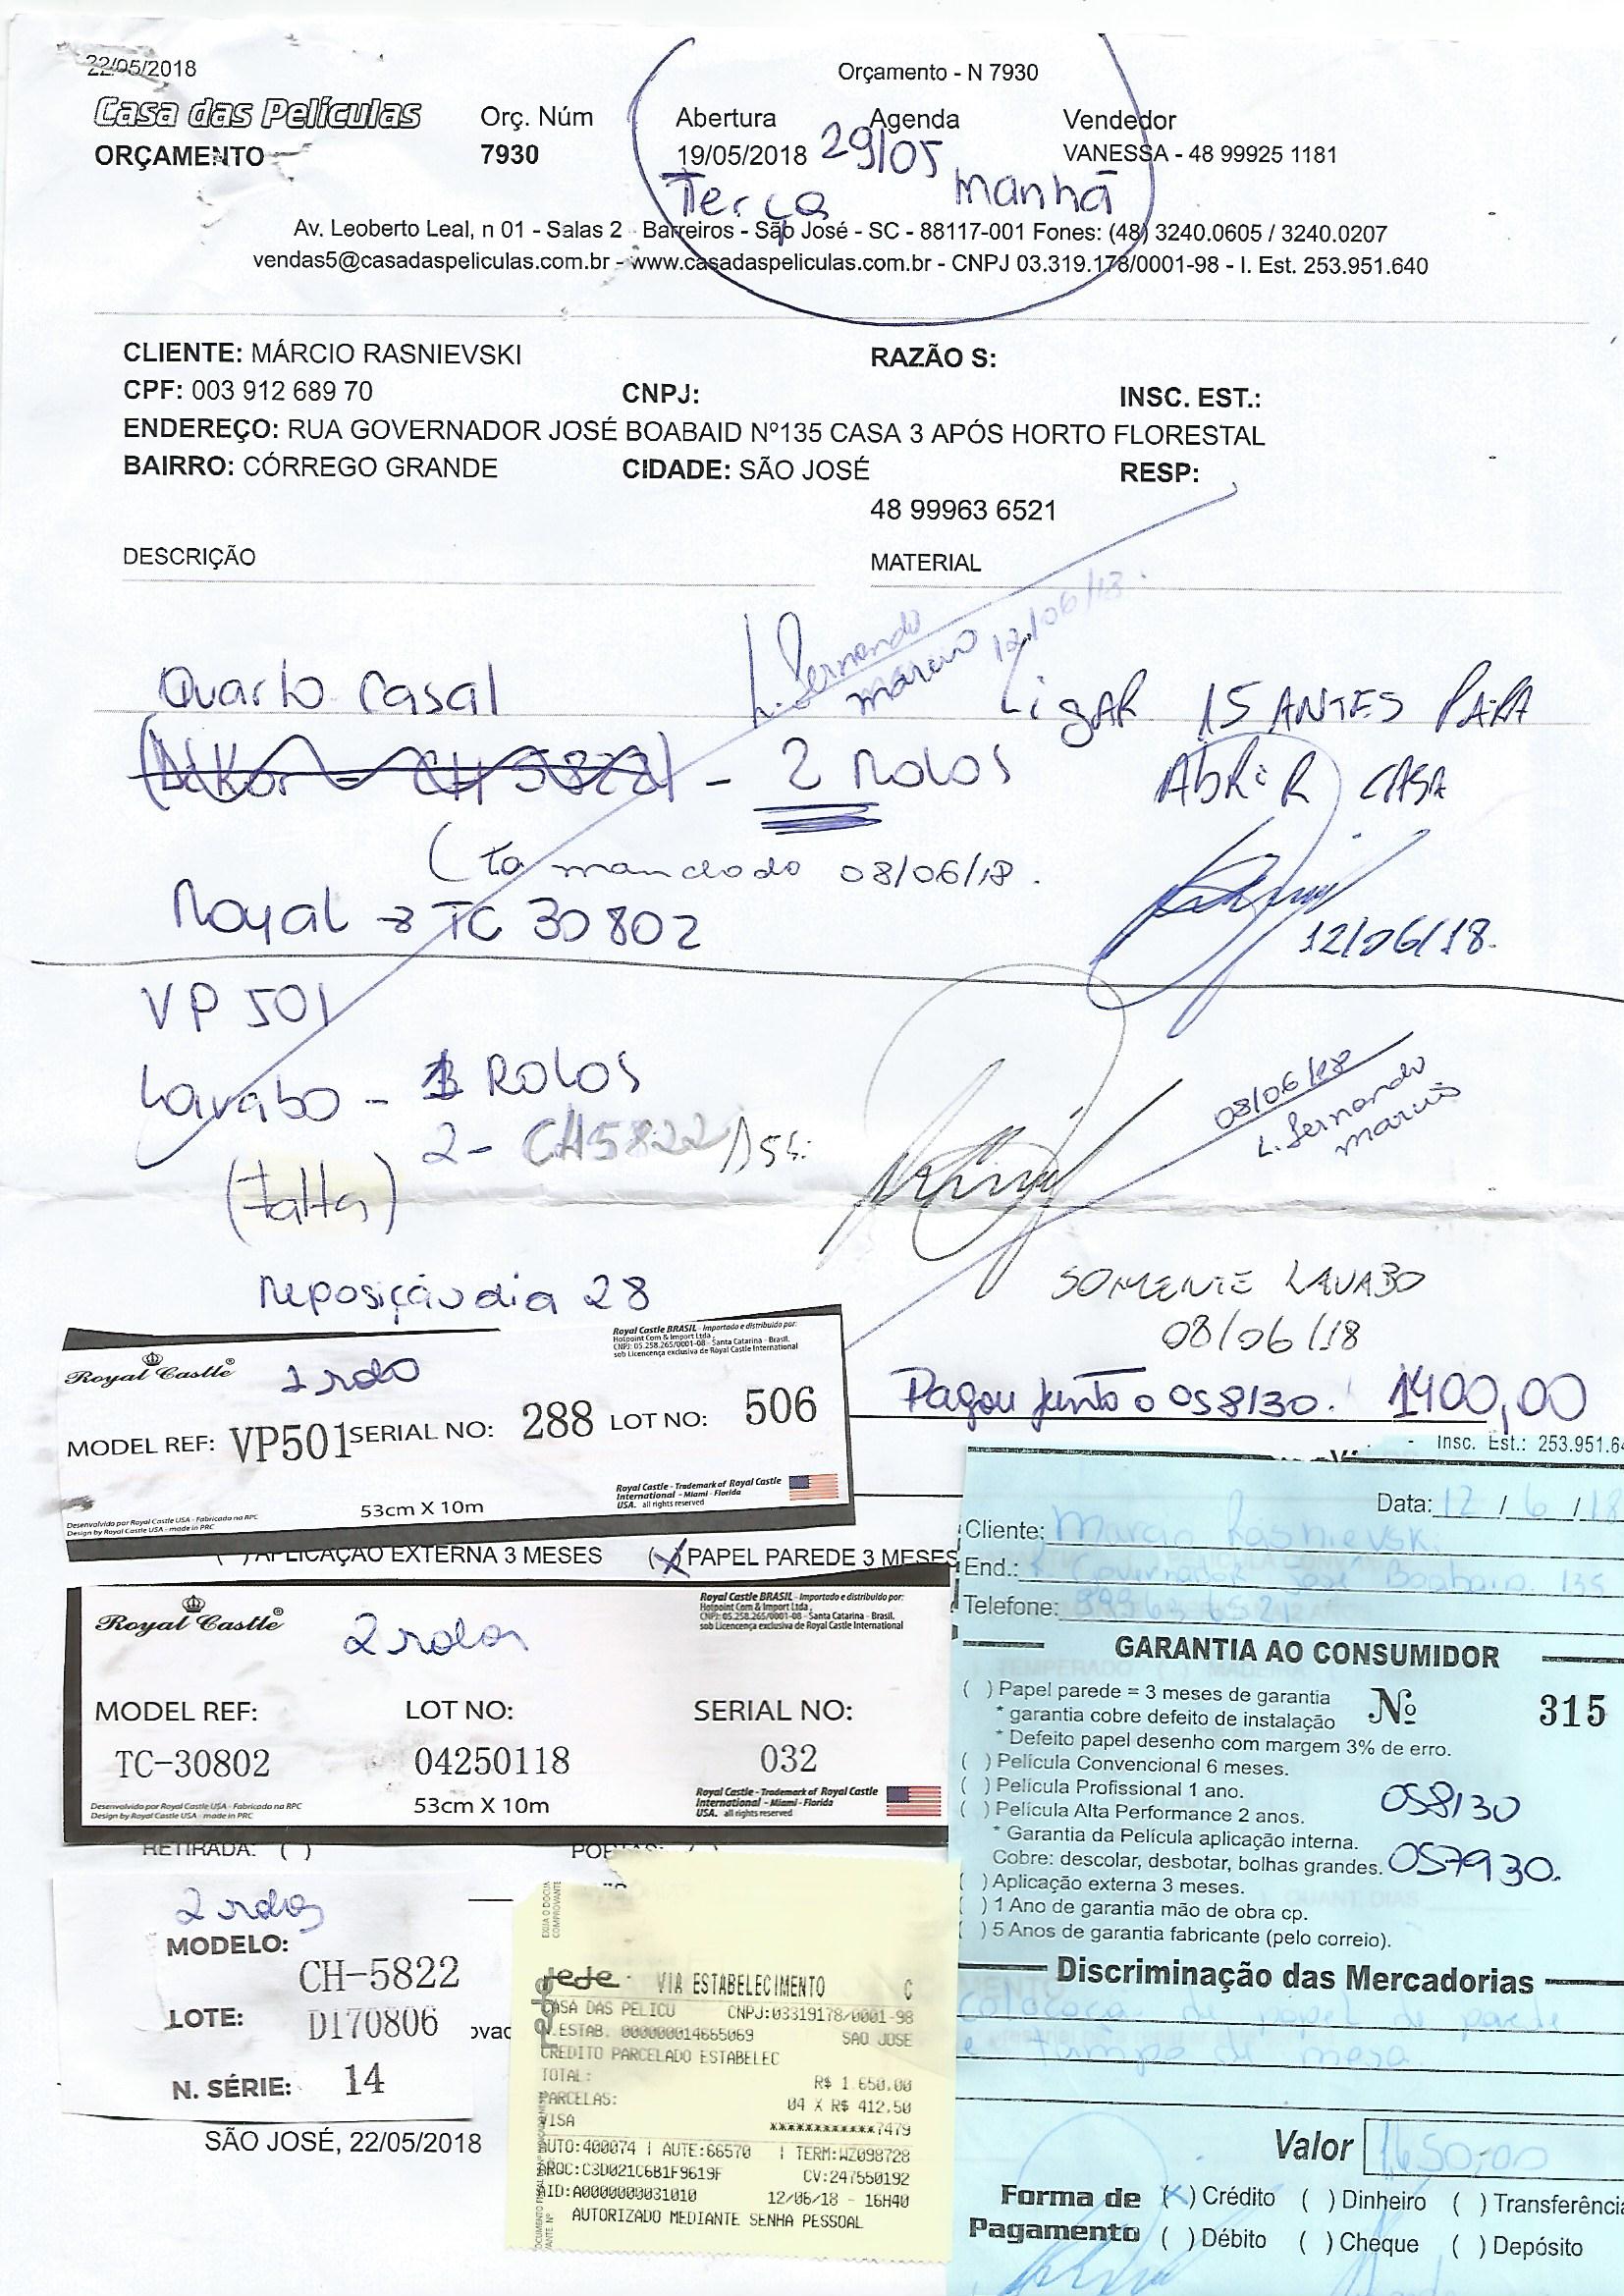 22/05/2018
Orçamento - N 7930
Casa das Películas
ORÇAMENTO
Orç. Núm
7930
Abertura
19/05/2018
Agenda
29/05
Terça manhã
Vendedor
VANESSA - 48 99925 1181
Av. Leoberto Leal, n 01 - Salas 2 - Barreiros - São José - SC - 88117-001 Fones: (48) 3240.0605 / 3240.0207
vendas5@casadaspeliculas.com.br - www.casadaspeliculas.com.br - CNPJ 03.319.178/0001-98 - I. Est. 253.951.640
CLIENTE: MÁRCIO RASNIEVSKI RAZÃO S:
CPF: 003 912 689 70 CNPJ: INSC. EST.:
ENDEREÇO: RUA GOVERNADOR JOSÉ BOABAID Nº135 CASA 3 APÓS HORTO FLORESTAL
BAIRRO: CÓRREGO GRANDE CIDADE: SÃO JOSÉ RESP:
48 99963 6521
DESCRIÇÃO MATERIAL
L. Fernando
marcio 12/06/18.
Quarto Casal
LigAR 15 ANTES PARA
ABRiR CASA
CH 5822) - 2 Rolos
(Ta manchado 08/06/18.
Royal → TC 30802
12/06/18.
VP 501
Lavabo - 1 ROLOS
2- CH5822 Ass:
(Falta)
08/06/18
L. Fernando
marcio
Reposição dia 28
SOMENTE LAVABO
08/06/18
Pagou junto o OS8130. 1400,00
Royal Castle
1 rolo
Royal Castle BRASIL - Importado e distribuido por:
Hotpoint Com & Import Ltda.
CNPJ: 05.258.265/0001-08 - Santa Catarina - Brasil.
sob Licencença exclusiva de Royal Castle International
MODEL REF: VP501 SERIAL NO: 288 LOT NO: 506
53cm X 10m
Royal Castle - Trademark of Royal Castle
International - Miami - Florida
USA. all rights reserved
Desenvolvido por Royal Castle USA - Fabricado na RPC
Design by Royal Castle USA - made in PRC
( ) APLICAÇÃO EXTERNA 3 MESES (X) PAPEL PAREDE 3 MESES
Royal Castle
2 rolos
Royal Castle BRASIL - Importado e distribuido por:
Hotpoint Com & Import Ltda.
CNPJ: 05.258.265/0001-08 - Santa Catarina - Brasil.
sob Licencença exclusiva de Royal Castle International
MODEL REF: LOT NO: SERIAL NO:
TC-30802 04250118 032
53cm X 10m
Royal Castle - Trademark of Royal Castle
International - Miami - Florida
USA. all rights reserved
Desenvolvido por Royal Castle USA - Fabricado na RPC
Design by Royal Castle USA - made in PRC
RETIRADA: ( )
2 rolos
MODELO:
CH-5822
LOTE: D170806
N. SÉRIE: 14
SÃO JOSÉ, 22/05/2018
rede VIA ESTABELECIMENTO C
CASA DAS PELICU CNPJ:03319178/0001-98
N.ESTAB. 000000014665069 SAO JOSE
CREDITO PARCELADO ESTABELEC
TOTAL: R$ 1.650,00
PARCELAS: 04 X R$ 412,50
VISA ************7479
AUTO:400074 | AUTE:66570 | TERM:WZ098728
AROC:C3D021C6B1F9619F CV:247550192
AID:A0000000031010 12/06/18 - 16H40
AUTORIZADO MEDIANTE SENHA PESSOAL
- Insc. Est.: 253.951.64
Data: 12 / 6 / 18
Cliente: Marcio Rasnievski
End.: R. Governador José Boabaid 135
Telefone: 99963 6521
GARANTIA AO CONSUMIDOR
( ) Papel parede = 3 meses de garantia
* garantia cobre defeito de instalação
Nº 315
* Defeito papel desenho com margem 3% de erro.
( ) Película Convencional 6 meses.
( ) Película Profissional 1 ano.
( ) Película Alta Performance 2 anos.
OS8130
* Garantia da Película aplicação interna.
Cobre: descolar, desbotar, bolhas grandes.
OS7930.
( ) Aplicação externa 3 meses.
( ) 1 Ano de garantia mão de obra cp.
( ) 5 Anos de garantia fabricante (pelo correio).
Discriminação das Mercadorias
colocaçã de papel de parede
e tampo de mesa
Valor 1650,00
Forma de Pagamento
(X) Crédito ( ) Dinheiro ( ) Transferência
( ) Débito ( ) Cheque ( ) Depósito